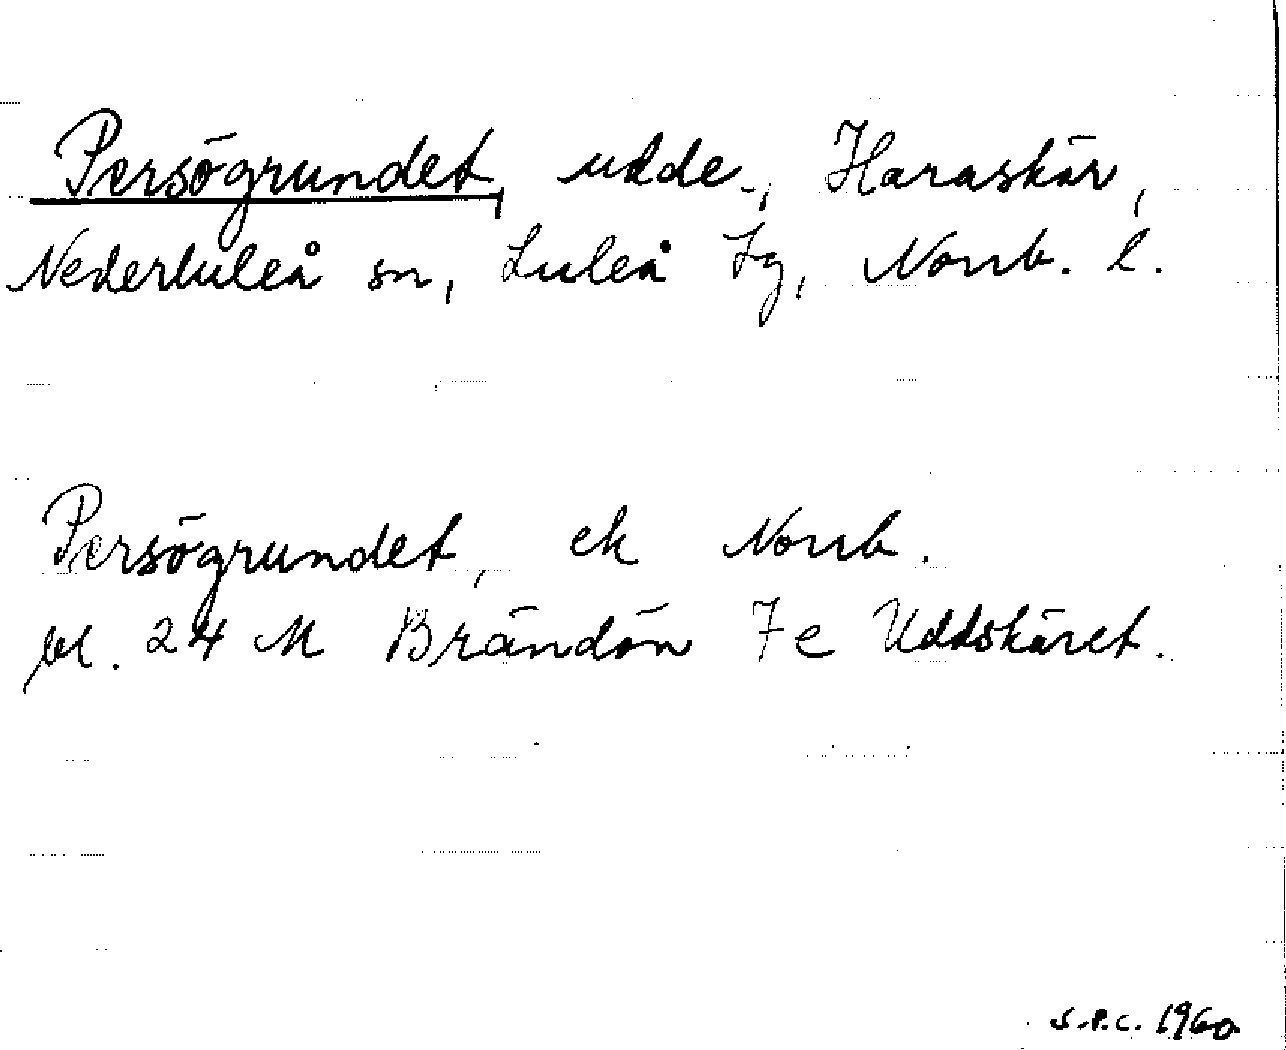 Persögrundet, udde, Haraskär,
Nederluleå sn, Luleå tg, Norrb. l.
Persögrundet, ek Norrb.
bl. 24 M Brändön 7 e Uddskäret.
S.P.C. 1960